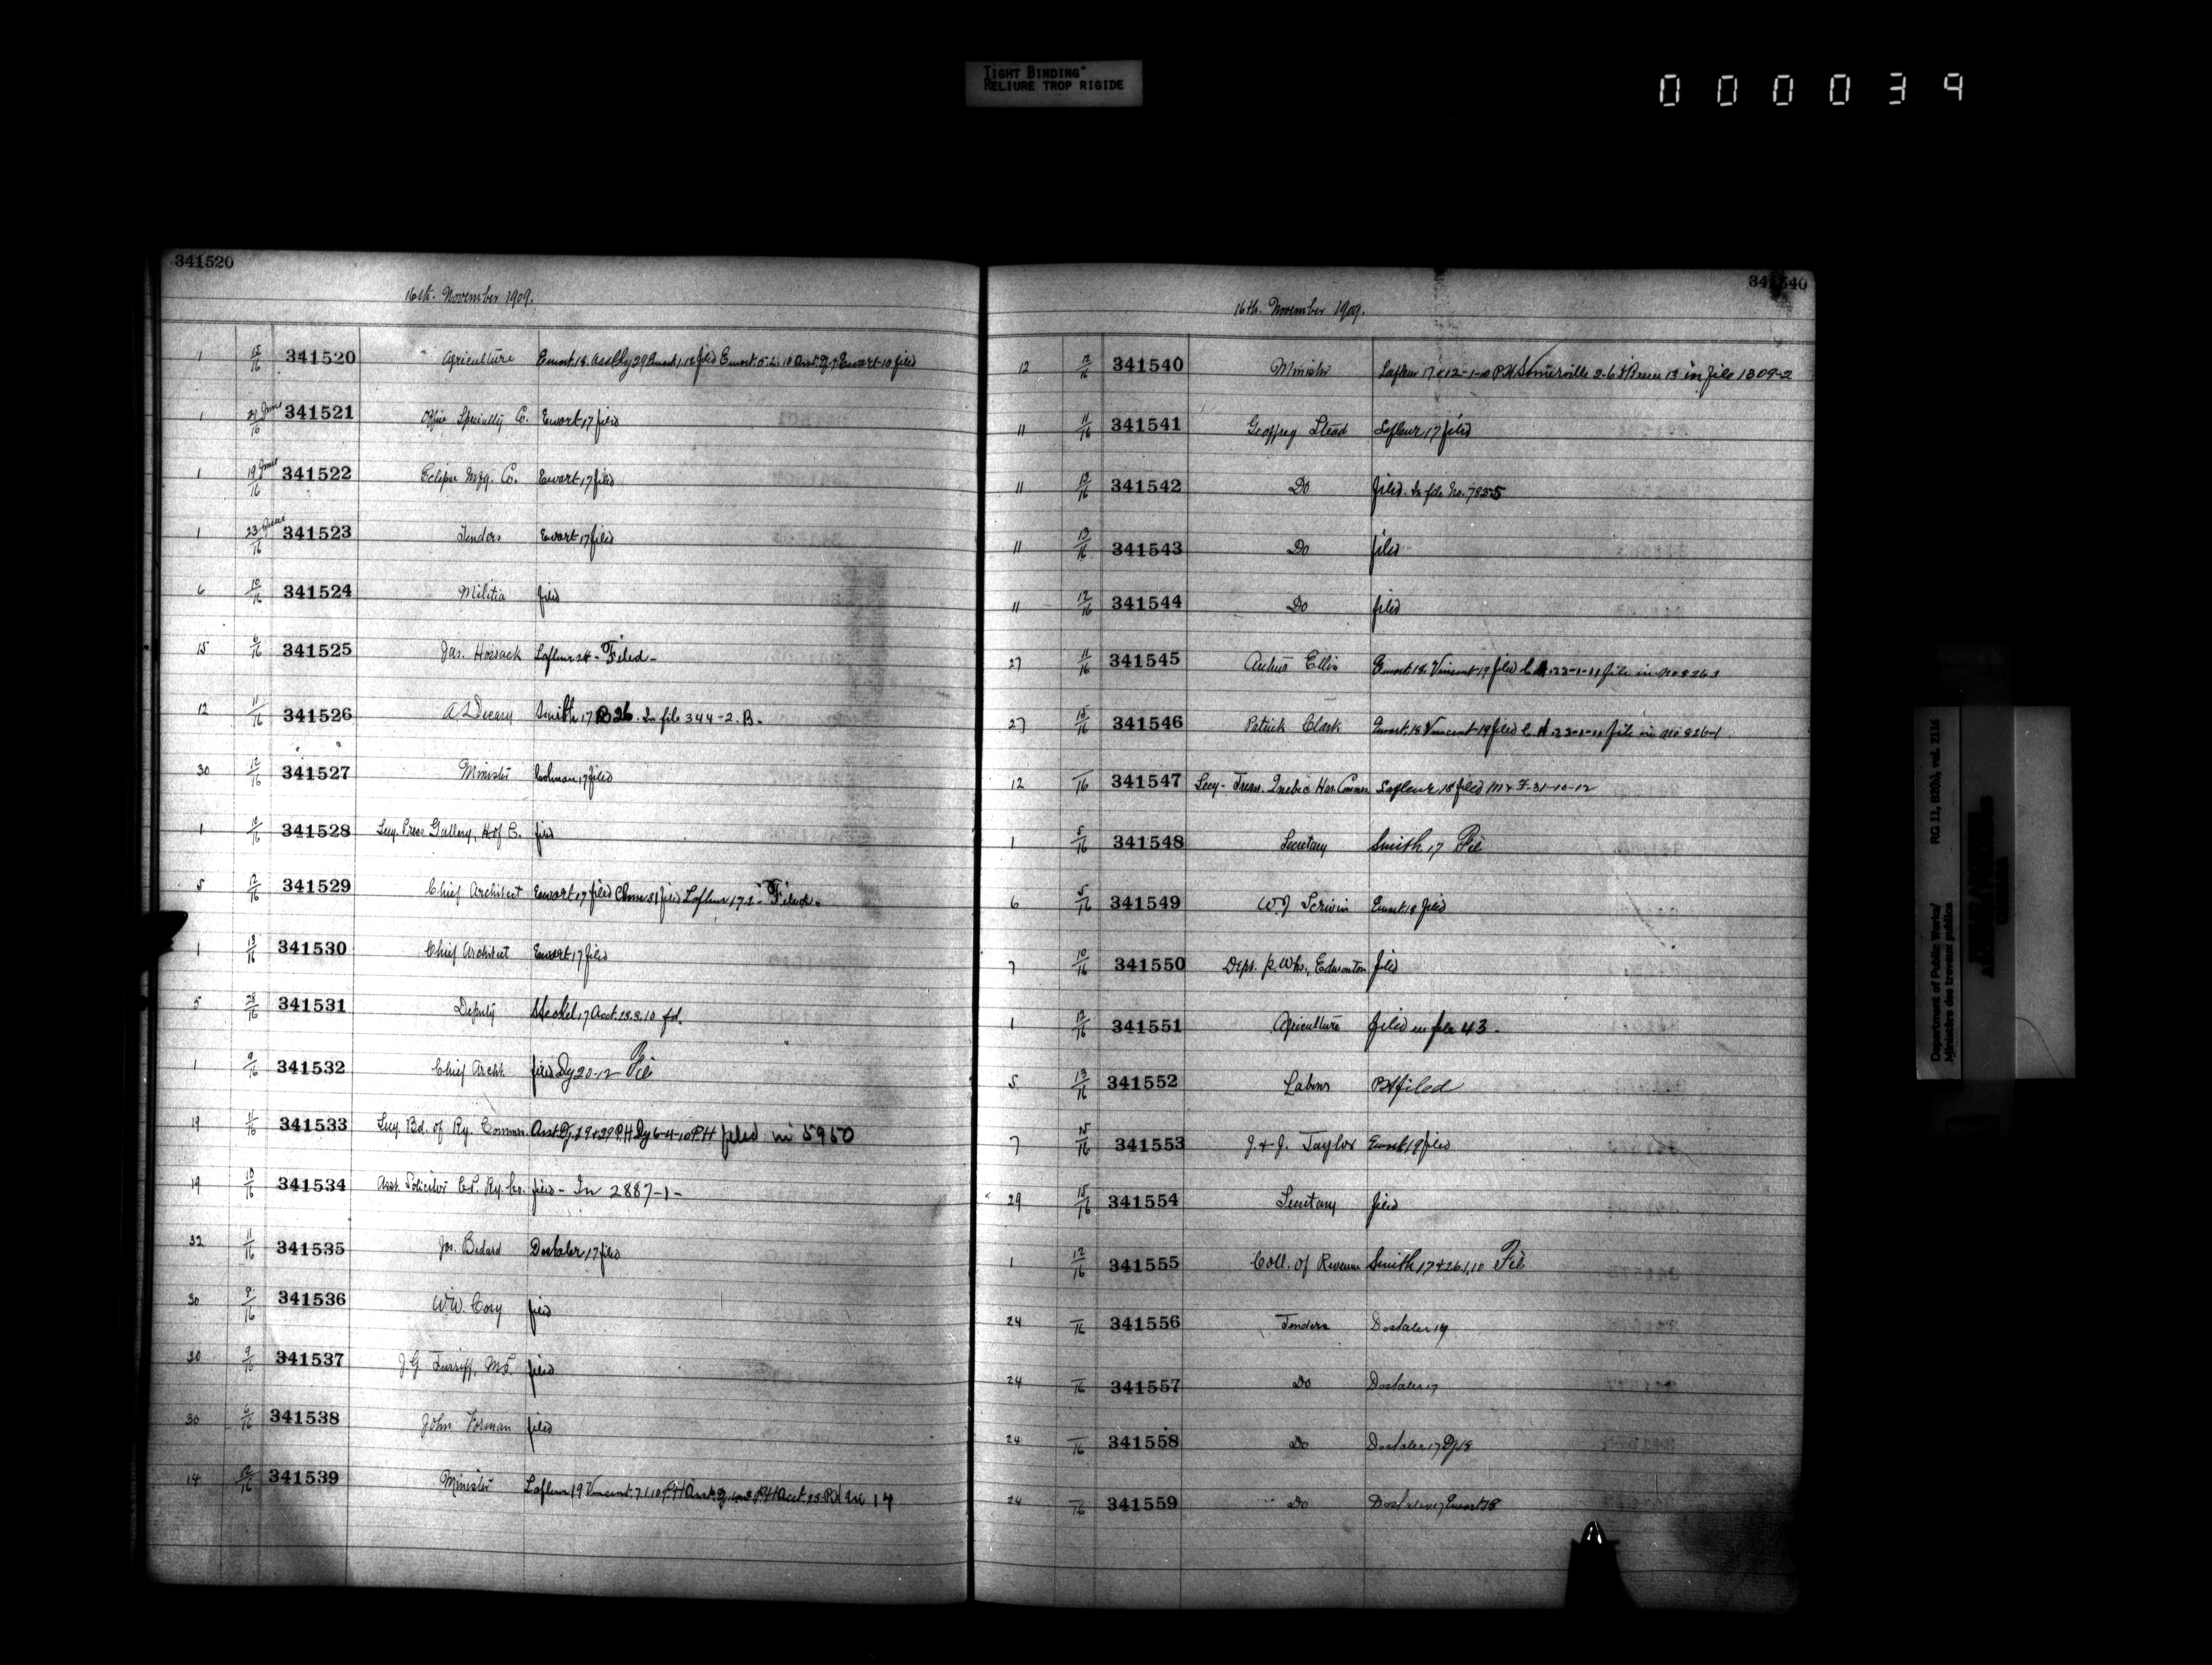 TIGHT BINDING
RELIURE TROP RIGIDE
000039
341520
16th. November 1909.
1 15/16 341520 Agriculture Ewart 18 Asst Dy 29 Ewart 1.12 filed Ewart 5.2.10 Asst Dy 7 Ewart 10 filed
1 21 June/16 341521 Office Specialty Co. Ewart 17 filed
1 19 June/16 341522 Eclipse Mfg. Co. Ewart 17 filed
1 23 June/16 341523 Tenders Ewart 17 filed
6 10/16 341524 Militia filed
15 6/16 341525 Jas. Hossack Lafleur 24 - Filed -
12 11/16 341526 A L Decary Smith 17 B 26. In file 344-2. B.
30 12/16 341527 Minister 17 filed
1 10/16 341528 Secy. Press Gallery, H of C. filed
5 12/16 341529 Chief Architect Ewart 17 filed 31 filed Lafleur 17.2 - Filed.
1 13/16 341530 Chief Architect Ewart 17 filed
5 28/16 341531 Deputy Steckel 17 Acct. 18.3.10 fd.
1 9/16 341532 Chief Archt. filed Dy 20-12 File
19 11/16 341533 Secy Bd. of Ry. Commrs. Asst Dy 19 & 29 P.H Dy 6-4-10 P.H filed in 5950
19 10/16 341534 Asst. Solicitor C.P. Ry. Co. filed - In 2887-1-
32 11/16 341535 Jos. Bedard Dostaler 17 filed
30 9/16 341536 W.W. Cory filed
30 9/16 341537 J.G. Turriff, M.P. filed
30 6/16 341538 John Forman filed
14 12/16 341539 Minister Lafleur 19 Vincent 7.1.10 P.H Asst. Dy P.H Acct 25 17
341540
16th. November 1909.
12 12/16 341540 Minister Lafleur 17 & 12-1-10 P.H Somerville 2-6 13 in file 1309-2
11 11/16 341541 Geoffrey Stead Lafleur 17 filed
11 13/16 341542 Do filed. In file No. 7835
11 13/16 341543 Do filed
11 12/16 341544 Do filed
27 11/16 341545 Ellis Ewart 18 Vincent 19 filed C.A. 23-1-11 file in no 826-1
27 15/16 341546 Patrick Clark Ewart 18 Vincent 19 filed C.A. 23-1-11 file in no 826-1
12 /16 341547 Secy-Treas. Quebec Har. Commrs Lafleur 18 filed M & F - 31-10-12
1 5/16 341548 Secretary Smith 17 File
6 5/16 341549 W.J. Scrivin Ewart 18 filed
7 10/16 341550 Dept. P. Wks., Edmonton filed
1 12/16 341551 Agriculture filed in file 43 -
5 13/16 341552 Labour P.H filed
7 15/16 341553 J. & J. Taylor Ewart 19 filed
29 15/16 341554 Secretary filed
1 12/16 341555 Coll. of Revenue Smith 17 & 26.1.10 File
24 /16 341556 Tenders Dostaler 17
24 /16 341557 Do Dostaler 17
24 /16 341558 Do Dostaler 17 Dy 18
24 /16 341559 Do Dostaler 17 Ewart 18
Department of Public Works/
Ministère des travaux publics
RG 11, B2(b), vol. 2116